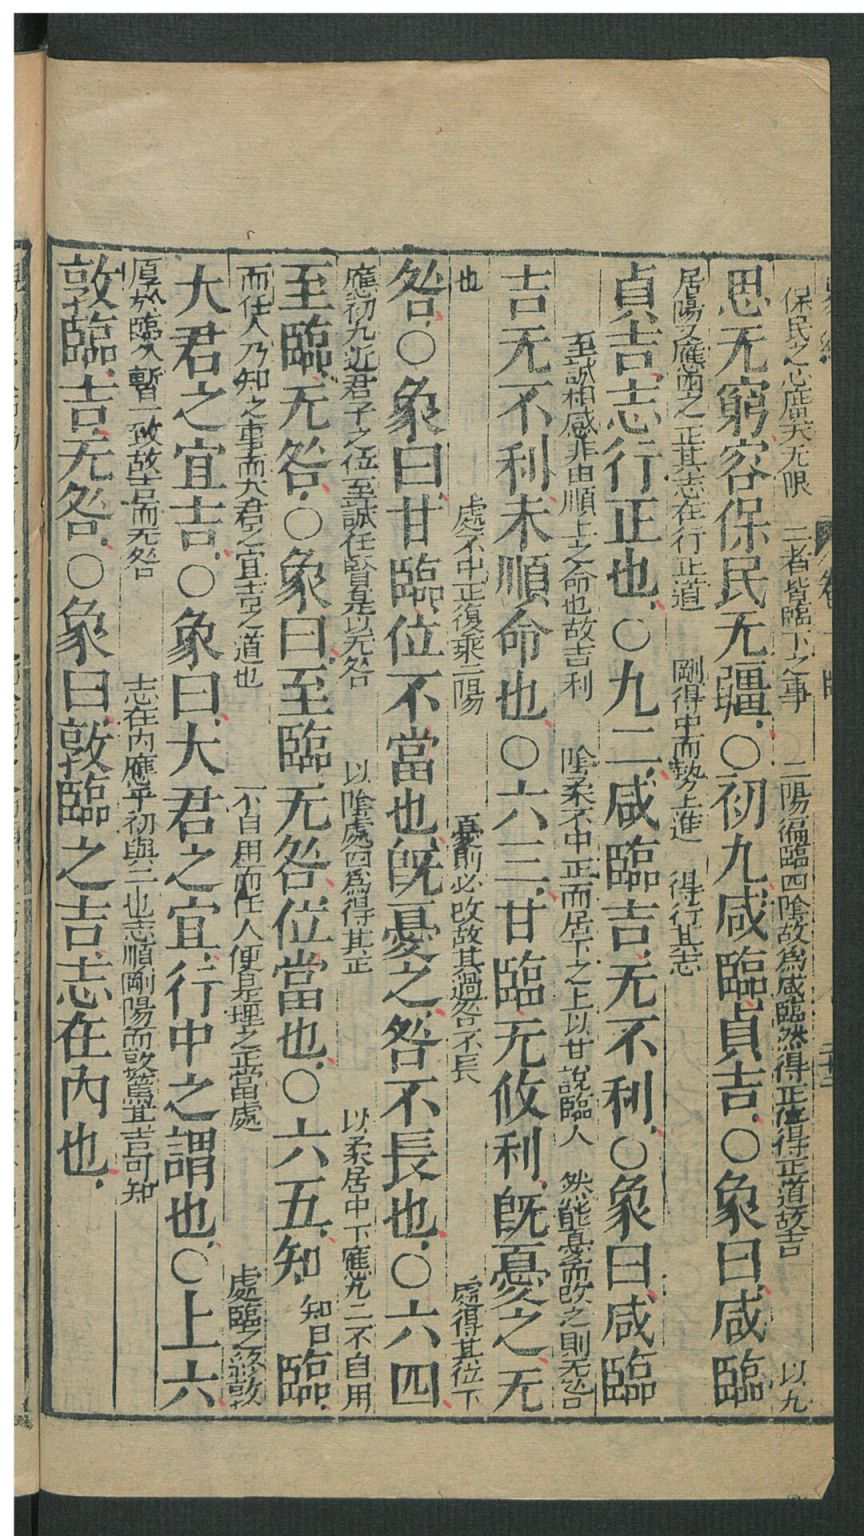 保民之心廣大无限　二者皆臨下之事　二陽徧臨四陰故爲咸臨然得正位得正道故吉　以九
思无窮容保民无疆○初九咸臨貞吉○象曰咸臨
居陽又應四之正其志在行正道　剛得中而勢上進　得行其志
貞吉志行正也○九二咸臨吉无不利○象曰咸臨
至誠相感非由順上之命也故吉利　陰柔不中正而居下之上以甘說臨人　然能憂而改之則无咎
吉无不利未順命也○六三甘臨无攸利旣憂之无
也　處不中正復乘二陽　憂則必改故其過咎不長　處得其位下
咎○象曰甘臨位不當也旣憂之咎不長也○六四
應初九近君子之位至誠任賢是以无咎　以陰處四爲得其正　以柔居中下應九二不自用
至臨无咎○象曰至臨无咎位當也○六五知知曰臨
而任人乃知之事而大君之宜吉之道也　不自用而任人便是理之正當處　處臨之終敦
大君之宜吉○象曰大君之宜行中之謂也○上六
厚於臨久暫一致故吉而无咎　志在内應乎初與二也志順剛陽而敦篤其吉可知
敦臨吉无咎○象曰敦臨之吉志在內也